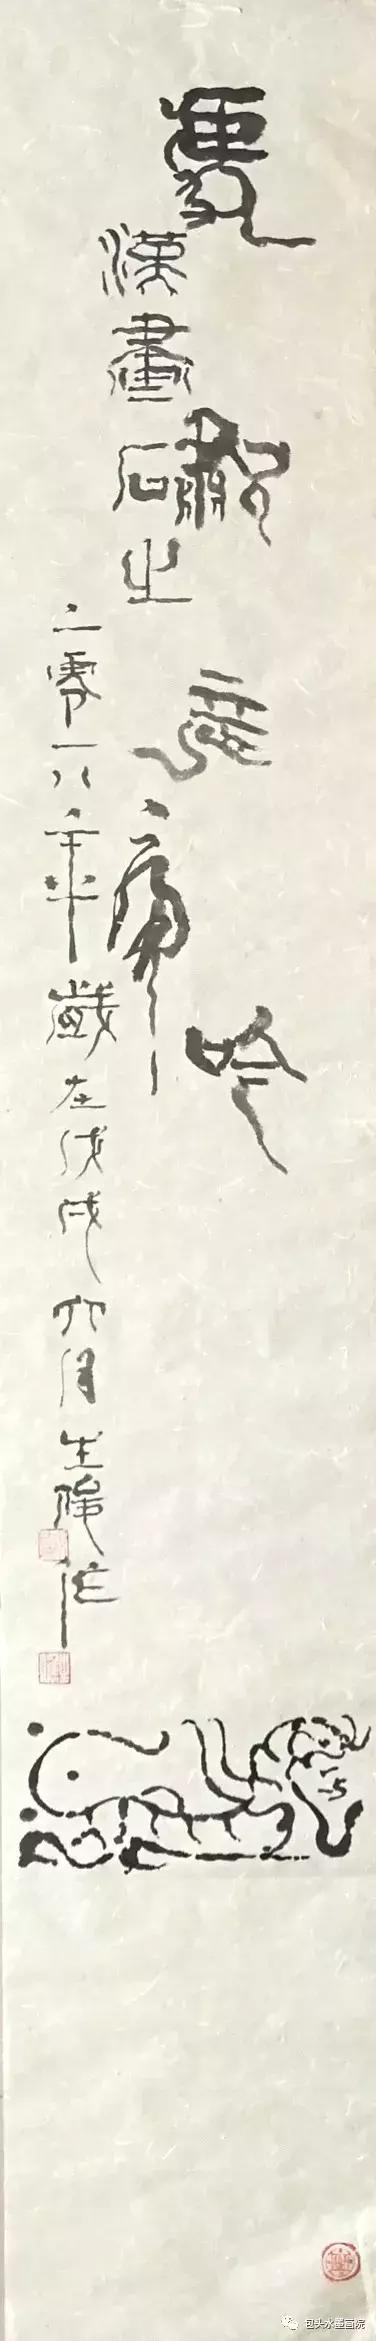 虎歗龍吟
漢畫石之
二零一八年歲在戊戌六月生作
包头水墨画院